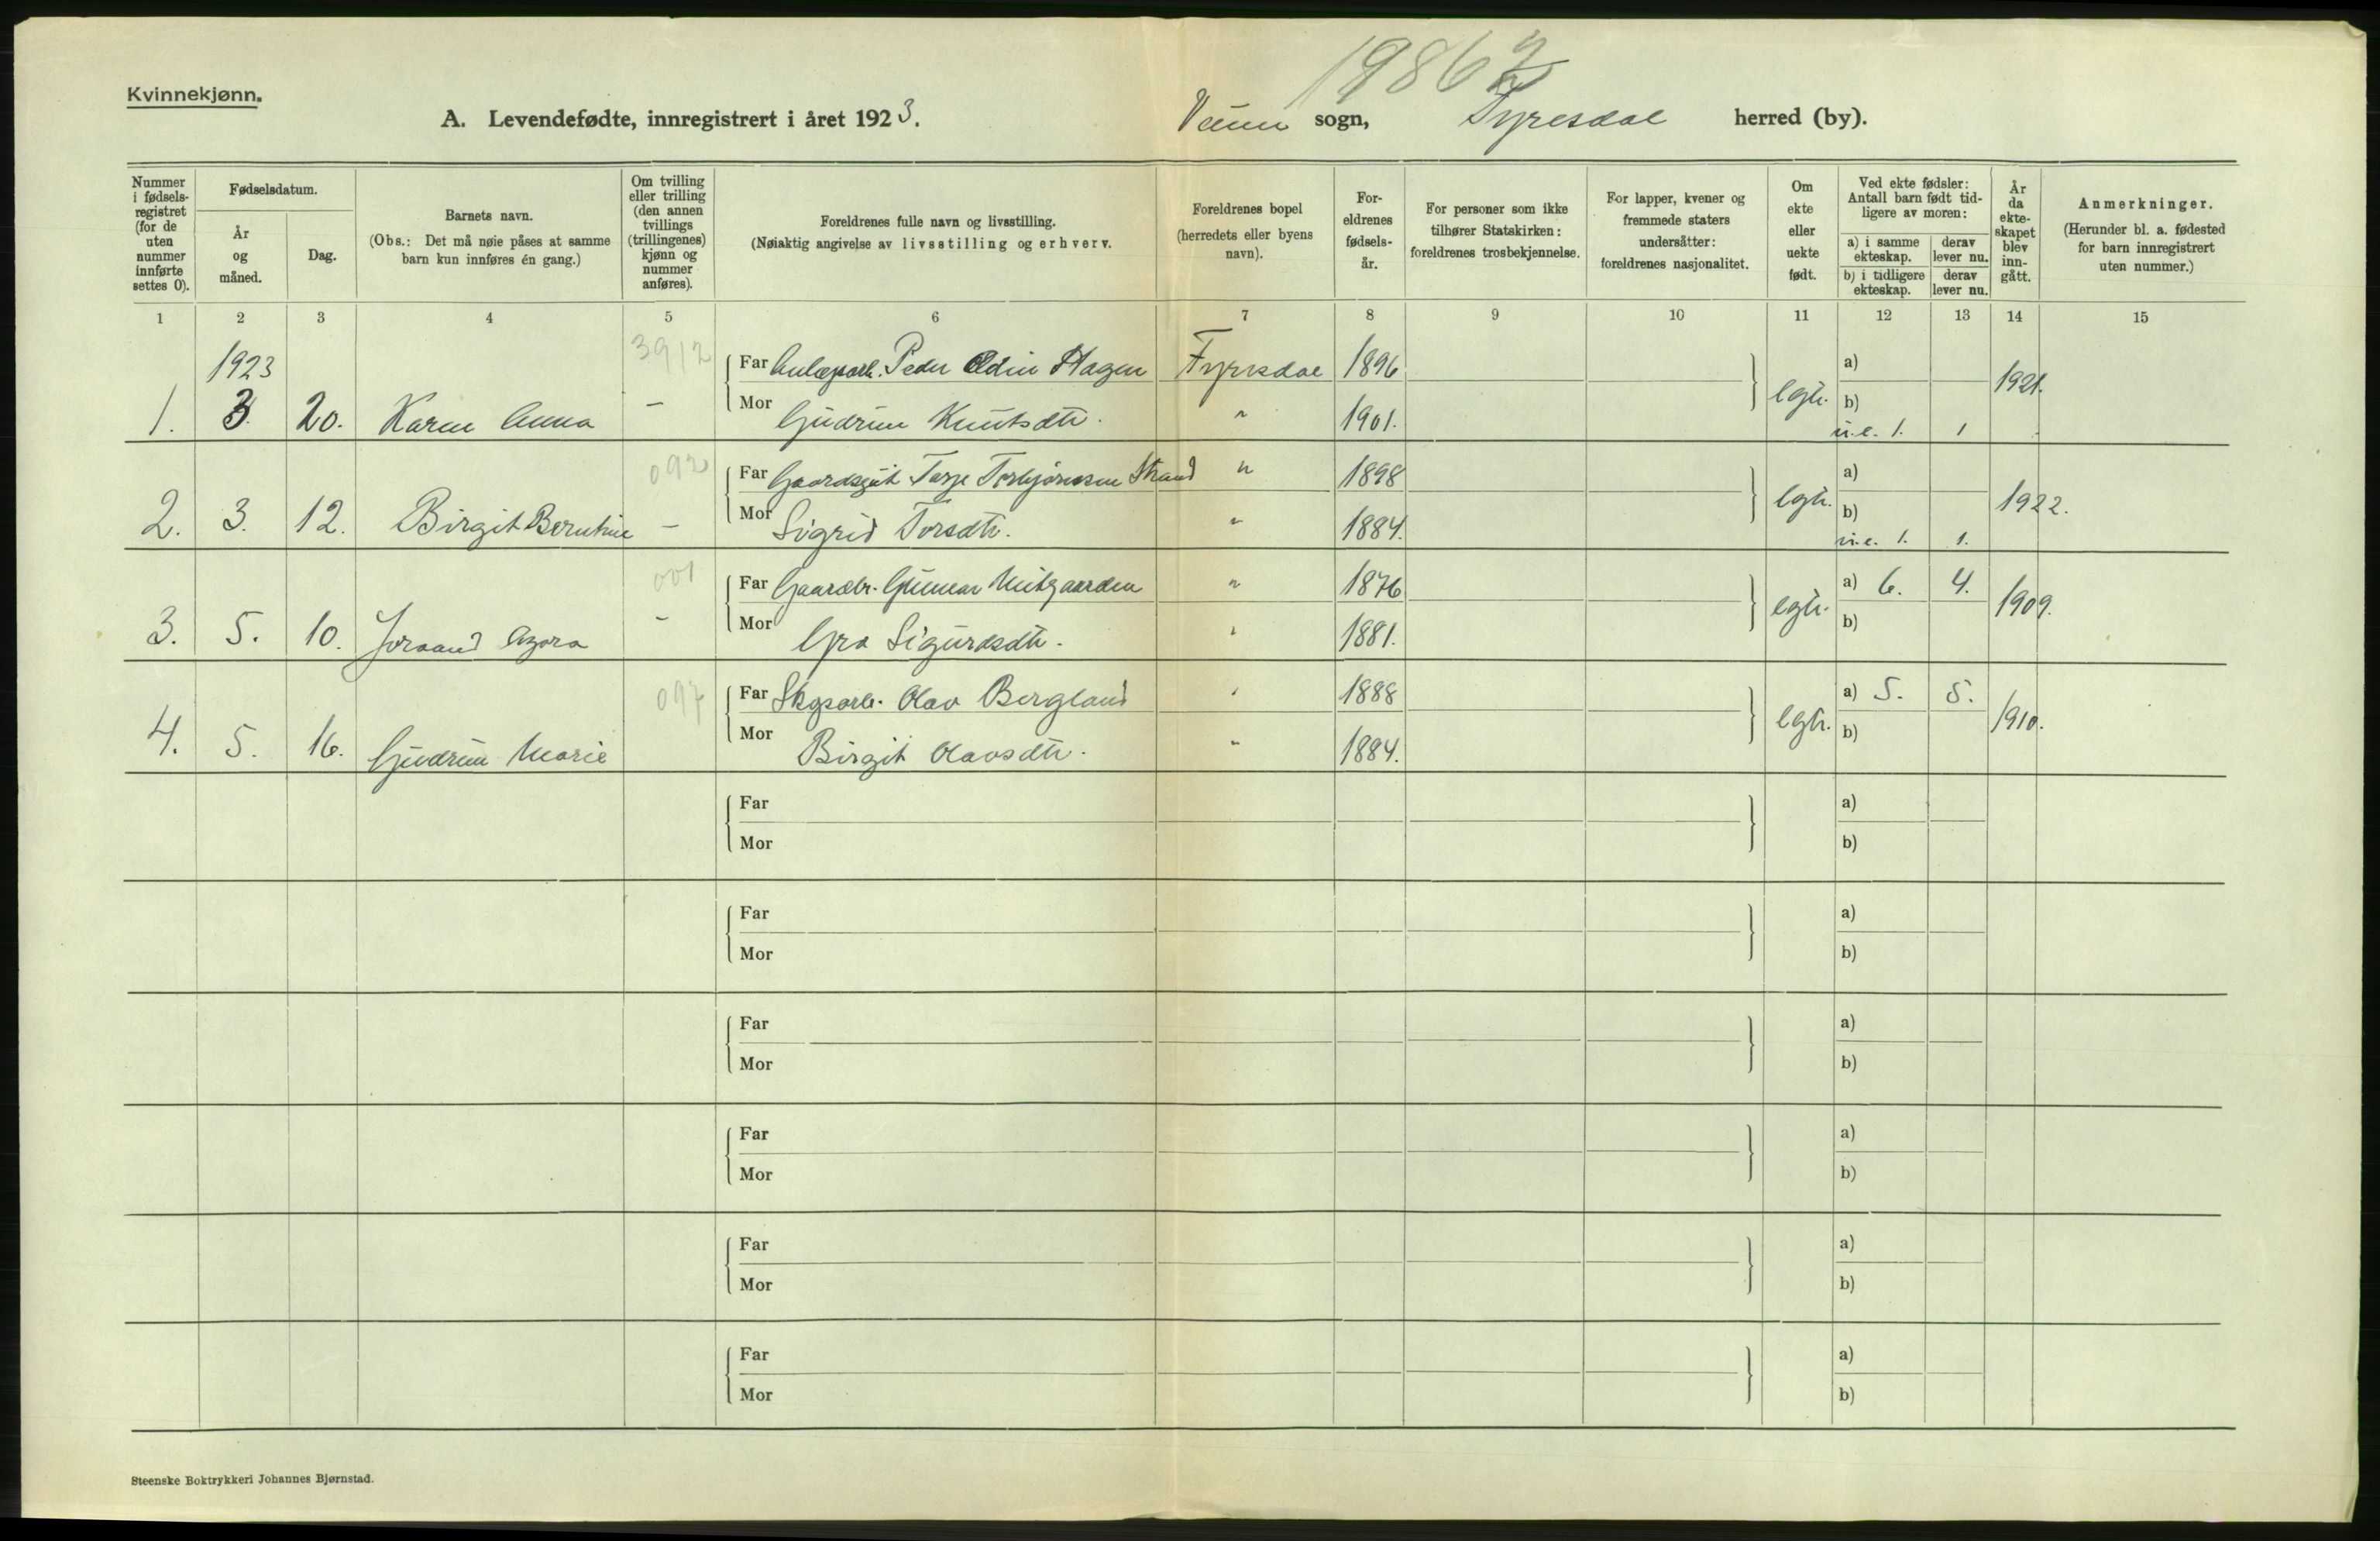 1986
Kvinnekjønn.
A. Levendefødte, innregistrert i året 1923.
Veum sogn, Fyresdal herred (by).
Nummer i fødsels-registret (for de uten nummer innførte settes 0).
Fødselsdatum.
År og måned.
Dag.
Barnets navn.
(Obs.: Det må nøie påses at samme barn kun innføres én gang.)
Om tvilling eller trilling (den annen tvillings (trillingenes) kjønn og nummer anføres).
Foreldrenes fulle navn og livsstilling.
(Nøiaktig angivelse av livsstilling og erhverv.
Foreldrenes bopel (herredets eller byens navn).
For-eldrenes fødsels-år.
For personer som ikke tilhører Statskirken: foreldrenes trosbekjennelse.
For lapper, kvener og fremmede staters undersåtter: foreldrenes nasjonalitet.
Om ekte eller uekte født.
Ved ekte fødsler: Antall barn født tid-ligere av moren:
a) i samme ekteskap.
derav lever nu.
b) i tidligere ekteskap.
derav lever nu.
År da ekte-skapet blev inn-gått.
Anmerkninger.
(Herunder bl. a. fødested for barn innregistrert uten nummer.)
1 2 3 4 5 6 7 8 9 10 11 12 13 14 15
1923 3912 Far Anlægsarb. Peder Odin Hagen Fyresdal 1896 a) 1921.
1. 3. 20. Karen Anna – Mor Gudrun Knutsdtr. " 1901. egte. b)
u.e. 1. 1
092 Far Gaardsgut Tarje Torbjørnsen Strand " 1898 a) 1922.
2. 3. 12. Birgit Berntine – Mor Sigrid Torsdtr. " 1884. egte. b)
u.e. 1. 1.
001 Far Gaardbr. Gunnar Midgaarden " 1876 a) 6. 4. 1909.
3. 5. 10. Joraand Azora – Mor Gro Sigurdsdtr. " 1881. egte. b)
097 Far Skogsarb. Olav Bergland " 1888 a) 5. 5. 1910.
4. 5. 16. Gudrun Marie Mor Birgit Olavsdtr. " 1884. egte. b)
Far a)
Mor b)
Far a)
Mor b)
Far a)
Mor b)
Far a)
Mor b)
Far a)
Mor b)
Far a)
Mor b)
Steenske Boktrykkeri Johannes Bjørnstad.